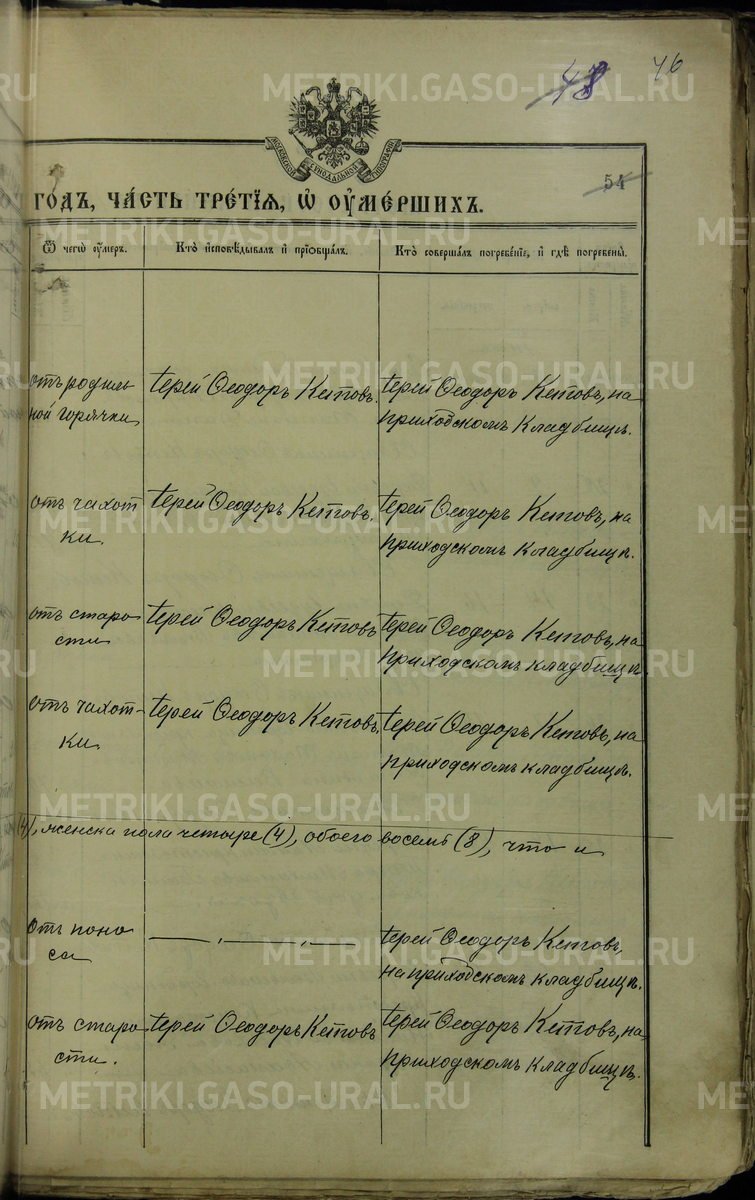 48 46
МОСКОВСКОЙ СѴНОДАЛЬНОЙ ТИПОГРАФІИ
54
ГОДЪ, ЧА́СТЬ ТРЕ́ТІЯ, Ѡ҆ ОУ҆МЕ́РШИХЪ.
Ѿ чегѡ̀ оу҆́меръ. Кто̀ и҆сповѣ́дывалъ и҆ прїѡбща́лъ. Кто̀ соверша́лъ погребе́нїе, и҆ гдѣ̀ погребены̀.
отъ родиль Іерей Ѳеодоръ Кетовъ. Іерей Ѳеодоръ Кетовъ, на
ной горячки приходскомъ кладбищѣ.
отъ чахот Іерей Ѳеодоръ Кетовъ. Іерей Ѳеодоръ Кетовъ, на
ки. приходскомъ кладбищѣ.
отъ старо Іерей Ѳеодоръ Кетовъ Іерей Ѳеодоръ Кетовъ, на
сти приходскомъ кладбищѣ.
отъ чахот- Іерей Ѳеодоръ Кетовъ. Іерей Ѳеодоръ Кетовъ, на
ки. приходскомъ кладбищѣ.
(4), женска пола четыре (4), обоего восемь (8), что и
отъ поно Іерей Ѳеодоръ Кетовъ,
са на приходскомъ кладбищѣ.
отъ старо Іерей Ѳеодоръ Кетовъ Іерей Ѳеодоръ Кетовъ, на
сти. приходскомъ кладбищѣ.
METRIKI.GASO-URAL.RU